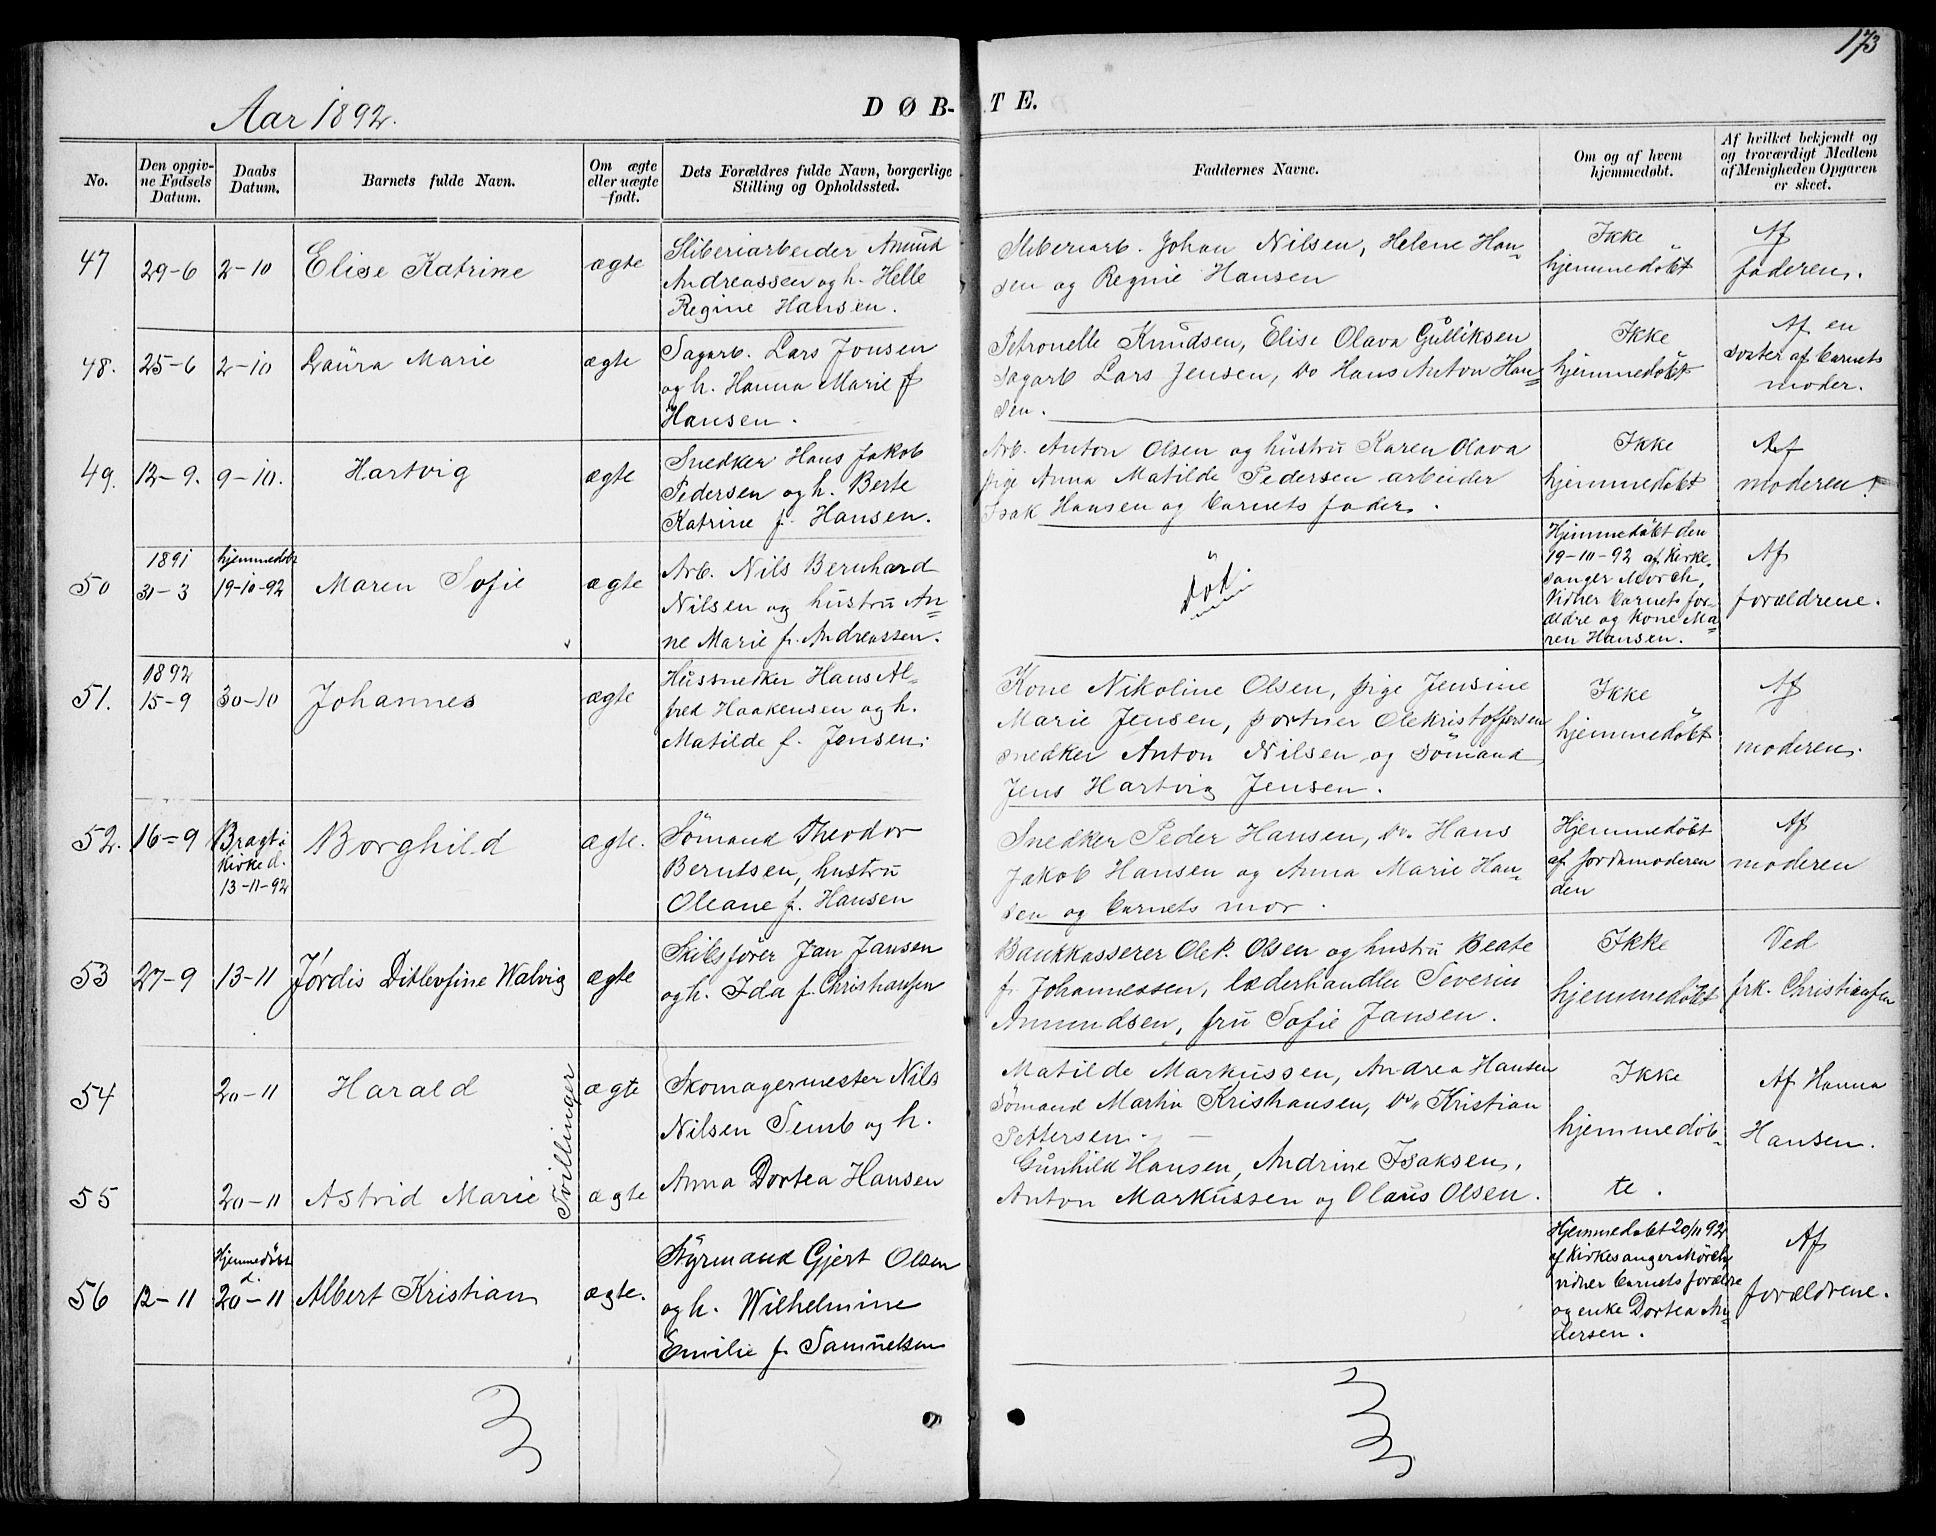 173
Aar 1892.
DØB-TE.
No.
Den opgivne Fødsels Datum.
Daabs Datum.
Barnets fulde Navn.
Om ægte eller uægte født.
Dets Forældres fulde Navn, borgerlige Stilling og Opholdssted.
Faddernes Navne.
Om og af hvem hjemmedøbt.
Af hvilket bekjendt og og troværdigt Medlem af Menigheden Opgaven er skeet.
47 29-6 2-10 Elise Katrine ægte
Sliberiarbeider Amund
Andreassen og h. Helle
Regine Hansen.
Sliberiarb. Johan Nilsen, Helene Han-
sen og Regine Hansen
Ikke
hjemmedøbt
Af
faderen.
48. 25-6 2-10 Laura Marie ægte
Sagarb. Lars Jonsen
og h. Hanna Marie f
Hansen.
Petronelle Knudsen, Elise Olava Gulliksen
Sagarb Lars Jensen, Do Hans Anton Han-
sen.
Ikke
hjemmedøbt
Af en
søster af barnets
moder.
49. 12-9. 9-10. Hartvig ægte
Snedker Hans Jakob
Pedersen og h. Berte
Katrine f. Hansen.
Arb. Anton Olsen og hustru Karen Olava
pige Anna Matilde Pedersen arbeider
Isak Hansen og barnets fader.
Ikke
hjemmedøbt
Af
moderen.
1891 hjemmedøbt
50 31-3 19-10-92 Maren Sofie ægte
Arb. Nils Bernhard
Nilsen og hustru An-
ne Marie f. Andreassen.
død.
Hjemmedøbt den
19-10-92 af Kirke-
sanger Mørch,
Vidner barnets for-
ældre og Kone Ma-
ren Hansen.
Af
forældrene.
1892
51. 15-9 30-10 Johannes ægte
Hussnedker Hans Al-
fred Haakensen og h.
Matilde f. Jensen.
Kone Nikoline Olsen, pige Jensine
Marie Jensen, portner Ole Kristoffersen
snedker Anton Nilsen og Sømand
Jens Hartvig Jensen.
Ikke
hjemmedøbt
Af
moderen.
52. 16-9 Bragt i
Kirke d.
13-11-92
Borghild ægte.
Sømand Theodor
Berntsen, hustru
Oleane f. Hansen
Snedker Peder Hansen, Do. Hans
Jakob Hansen og Anna Marie Han-
sen og barnets mor.
Hjemmedøbt
af Jordamoderen
den
Af
moderen
53 27-9 13-11 Jørdis Ditlevsine Walvig ægte
Skibsfører Jan Jansen
og h. Ida f. Christiansen
Bankkasserer Ole P. Olsen og hustru Beate
f. Johannessen, læderhandler Severin
Amundsen, fru Sofie Jansen.
Ikke
hjemmedøbt
Ved
frk. Christiansen
54 20-11 Harald ægte
Tvillinger
Skomagermester Nils
Nilsen Semb og h.
Anna Dortea Hansen
Matilde Markussen, Andrea Hansen
Sømand Martin Kristiansen, Do. Kristian
Pettersen.
Ikke
hjemmedøb-
te.
Af Hanna
Hansen.
55 20-11 Astrid Marie ægte
Gunhild Hansen, Andrine Isaksen,
Anton Markussen og Olaus Olsen.
Hjemmedøbt
d.
56 12-11 20-11 Albert Kristian ægte.
Styrmand Gjert Olsen
og h. Wilhelmine
Emilie f. Samuelsen
Hjemmedøbt 20/11 92
af Kirkesanger Mørch,
vidner barnets forældre
og enke Dortea An-
dersen.
Af
forældrene.